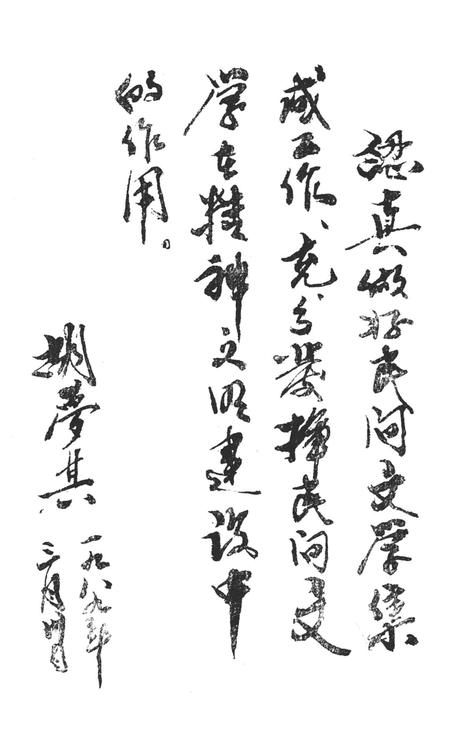 認真做好民间文学集
成工作、充分發揮民间文
学在精神文明建设中
的作用。
胡夢其
一九八九年
三月四日